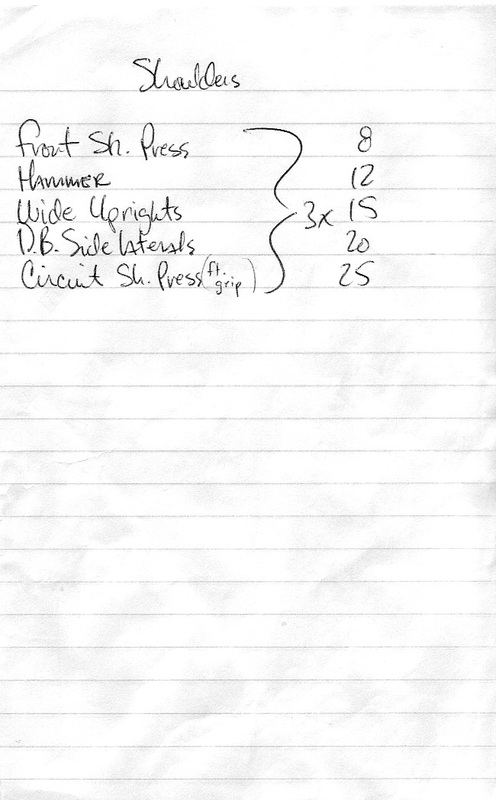 Shoulders
Front Sh. Press 8
HAMMER 12
Wide Uprights 3x 15
D.B. Side laterals 20
Circuit Sh. Press (ft. grip) 25